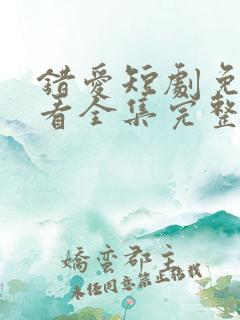 錯愛短劇免
看全集完整
嬌蛮郡主
未经同意禁止转载